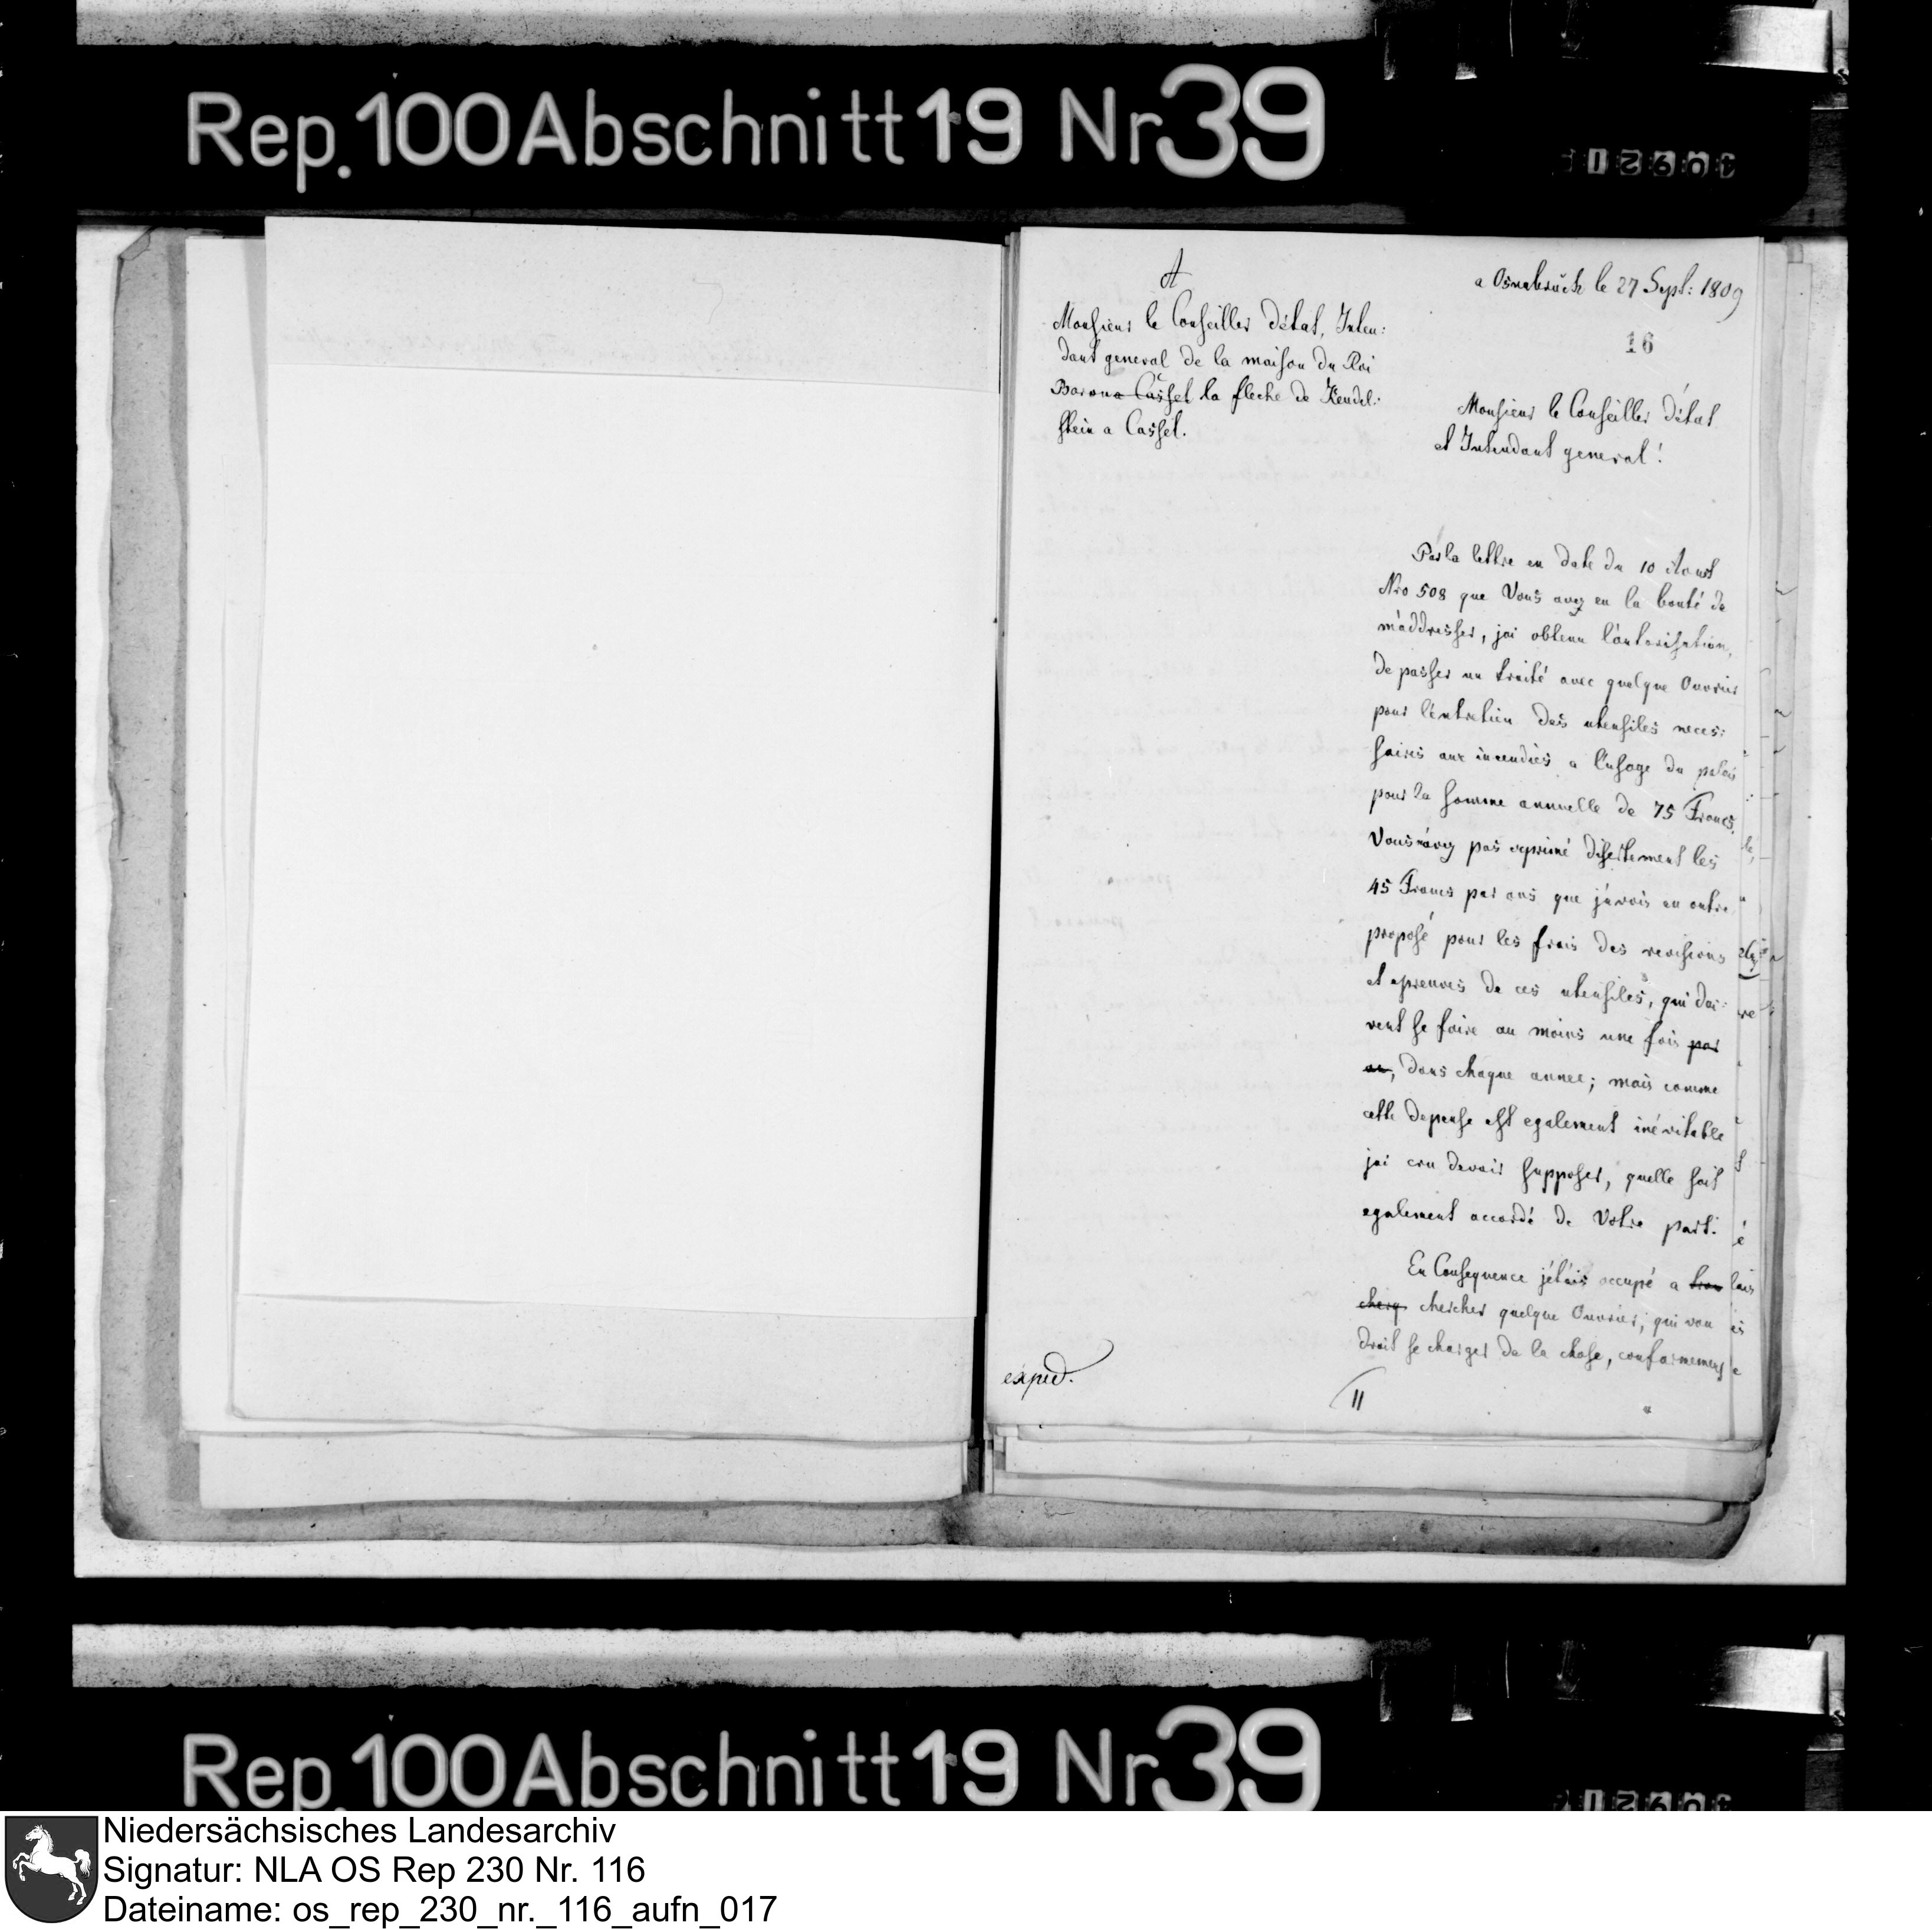 Rep. 100 Abschnitt 19 Nr 39
A
Monsieur le Conseiller détat, Inten:
dant general de la maison du Roi
Baron a Cassel la fleche de Keudel:
stein a Cassel.
a Osnabrück le 27 Sept: 1809
16
Monsieur le Conseiller détat
et Intendant general!
Par la lettre en date du 10 Aoust
Nro 508 que Vous avez eu la bonté de
m'addresser, jai obtenu l'autorisation,
de passer un traité avec quelque Ouvrier
pour l'entretien des utensiles neces:
saires aux incendies a l'usage du palais
pour la somme annuelle de 75 Francs.
Vous n'avez pas exprimé disertement les
45 Francs par ans que j'avois en outre
proposé pour les frais des revisions
et epreuves de ces utensiles, qui doi:
vent se faire au moins une fois par
an, dans chaque annee; mais comme
cette depense est egalement inévitable
jai cru devoir supposer, quelle soit
egalement accordé de Votre part.
En Consequence j'étais occupé a trou
cherg chercher quelque Ouvrier, qui vou
droit se charger de la chose, conformement
exped.
Rep. 100 Abschnitt 19 Nr 39
Niedersächsisches Landesarchiv
Signatur: NLA OS Rep 230 Nr. 116
Dateiname: os_rep_230_nr._116_aufn_017